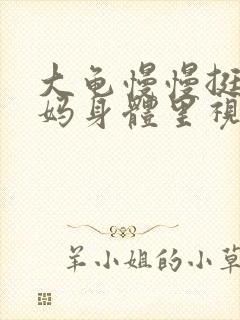 大龟慢慢挺
妈身體里視
羊小姐的小草